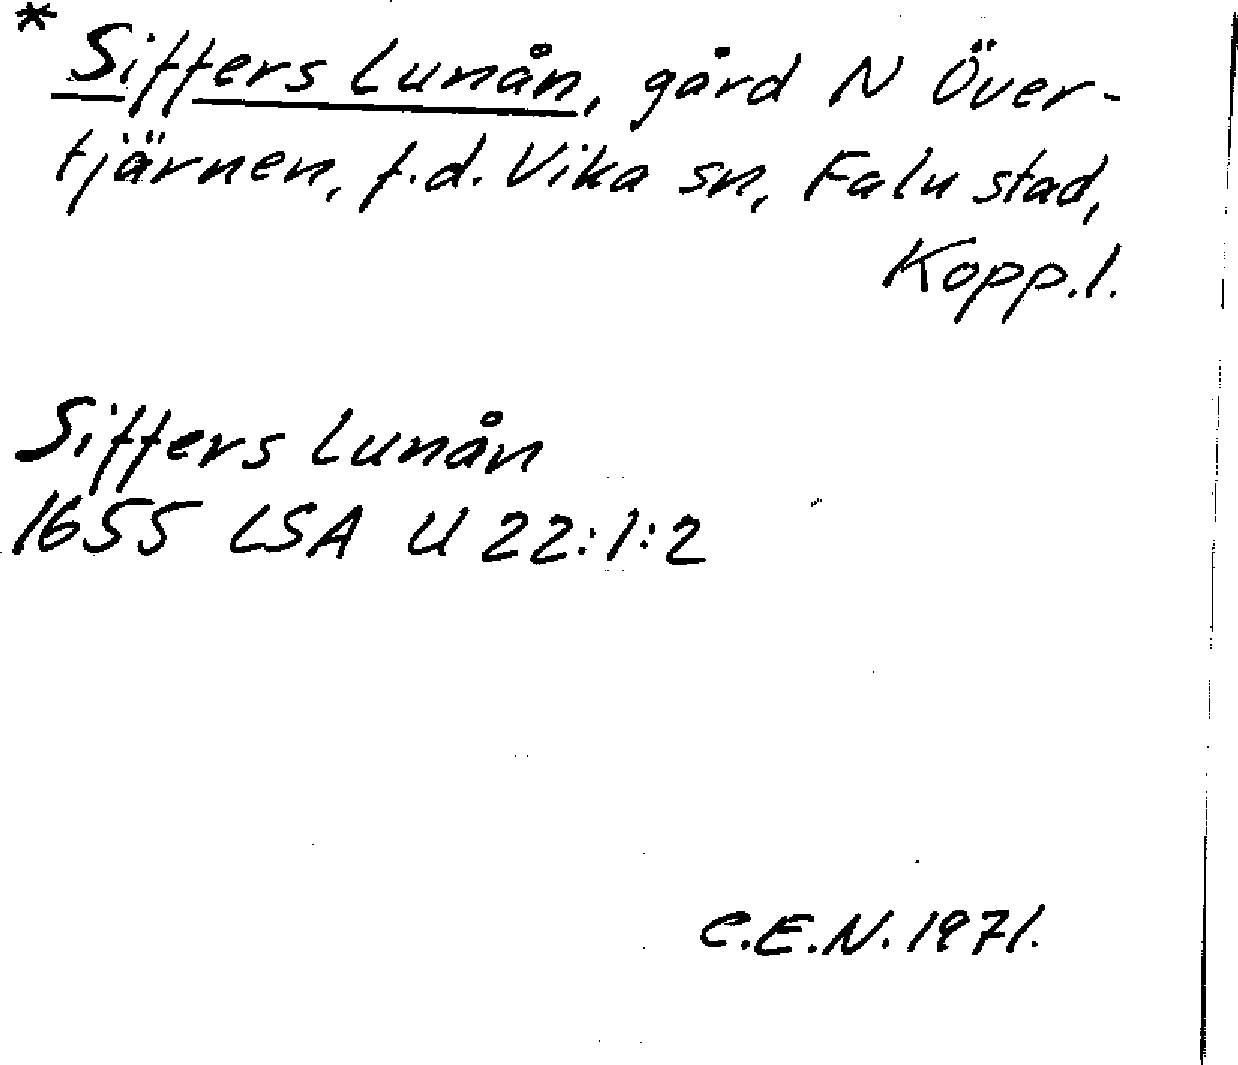 * Siffers Lunån, gård N Över-
tjärnen, f.d. Vika sn, Falu stad,
Kopp.l.
Siffers Lunån
1655 LSA U 22:1:2
C.E.N. 1971.